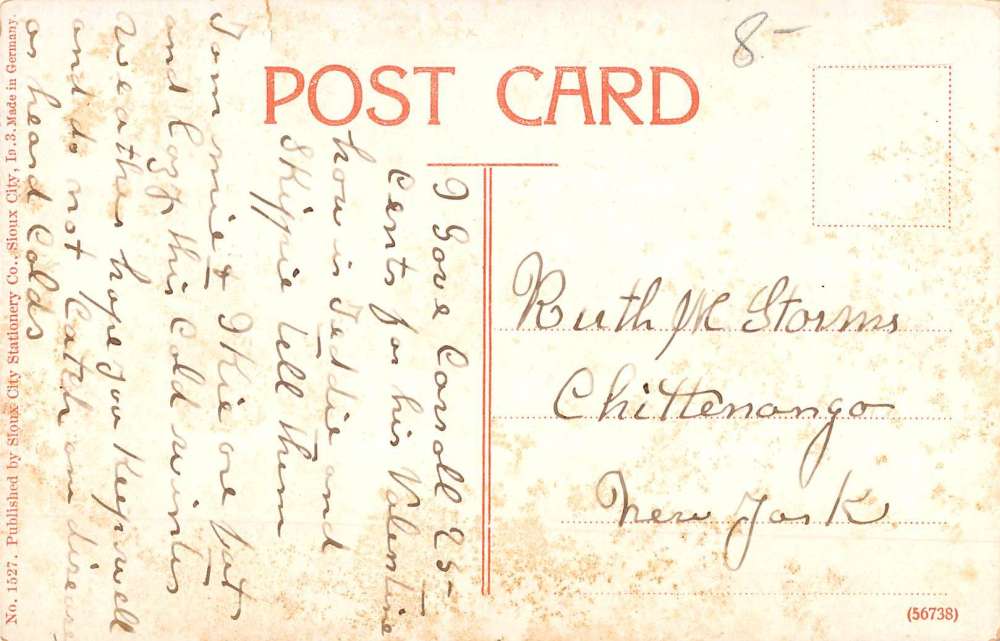 POST CARD
8-
I Gave Caroll 25
Cents for his Valentine
how is Teddie and
Skippie tell them
Tommie & Ikie are fat
and lazy this Cold winter
Weather hope you Keep well
and do not Catch any
or head Colds
Ruth M Storms
Chittenango
New York
No. 1527. Published by Sioux City Stationery Co., Sioux City, Ia. 3. Made in Germany.
(56738)